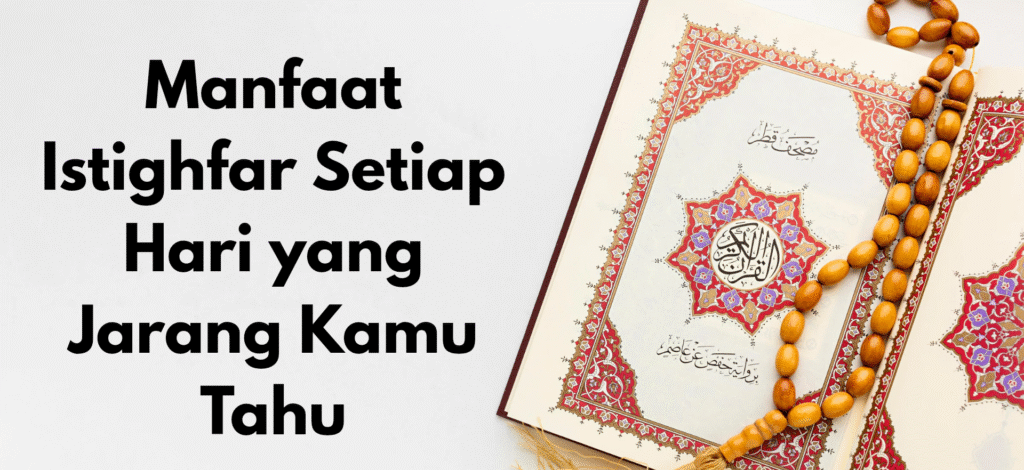 Manfaat
Istighfar Setiap
Hari yang
Jarang Kamu
Tahu
مصحف قطر
القرآن الكريم
برواية حفص عن عاصم